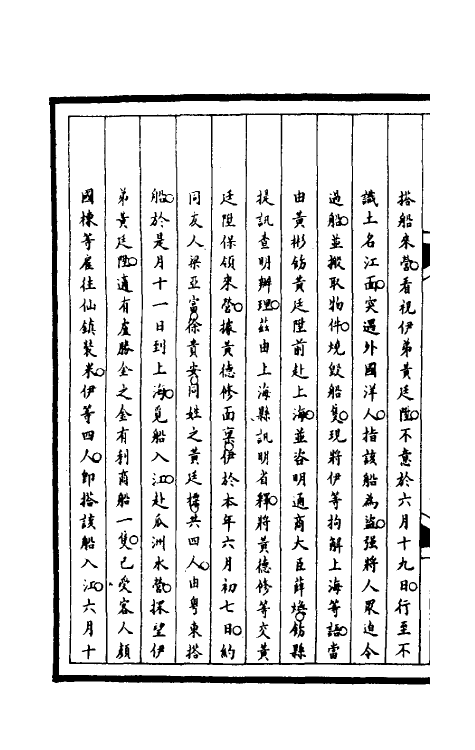 搭船來營看視伊弟黃廷陞不意於六月十九日行至不
識土名江面突遇外國洋人指該船為盜強將人眾迫令
過船並搬取物件燒燬船隻現將伊等拘解上海等語當
由黃彬飭黃廷陞前赴上海並咨明通商大臣薛煥飭縣
提訊查明辦理茲由上海縣訊明省釋將黃德修等交黃
廷陞保領來營據黃德修面稟伊於本年六月初七日約
同友人梁亞富徐貴安同姓之黃廷樑共四人由粵東搭
船於是月十一日到上海覓船入江赴瓜洲水營探望伊
弟黃廷陞適有盧勝全之金有利商船一隻已受客人顏
國棟等雇往仙鎮裝米伊等四人即搭該船入江六月十